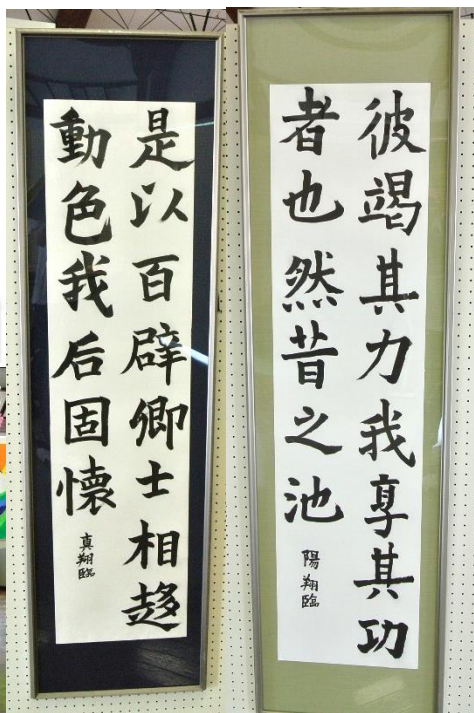 彼竭其力我享其功
者也然昔之池
陽翔臨
是以百辟卿士相趍
動色我后固懷
真翔臨